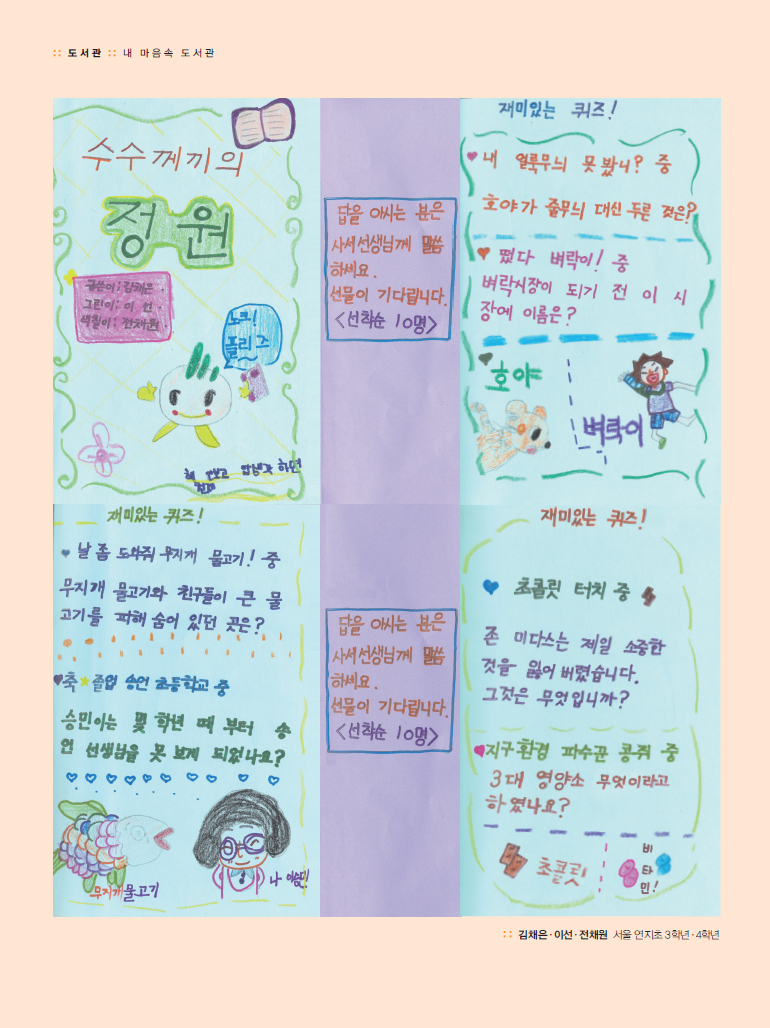 :: 도서관 :: 내 마음속 도서관
수수께끼의
정원
글쓴이: 김채은.
그린이: 이 선.
색칠이: 전채원
노크!
플리즈
책
하면
답을 아시는 분은
사서선생님께 말씀
하세요.
선물이 기다립니다.
<선착순 10명>
재미있는 퀴즈!
내 얼룩무늬 못 봤니? 중
호야가 줄무늬 대신 두른 것은?
떴다 벼락이! 중
벼락시장이 되기 전 이 시
장에 이름은?
호야
벼락이
재미있는 퀴즈!
날 좀 도와줘 무지개 물고기! 중
무지개 물고기와 친구들이 큰 물
고기를 피해 숨어 있던 곳은?
축★졸업 송언 초등학교 중
승민이는 몇 학년 때 부터 송
언 선생님을 못 보게 되었나요?
무지개물고기
나
답을 아시는 분은
사서선생님께 말씀
하세요.
선물이 기다립니다.
<선착순 10명>
재미있는 퀴즈!
초콜릿 터치 중
존 미다스는 제일 소중한
것을 잃어 버렸습니다.
그것은 무엇입니까?
지구환경 파수꾼 콩쥐 중
3대 영양소 무엇이라고
하였나요?
초콜릿
비
타
민!
:: 김채은·이선·전채원 서울 연지초 3학년·4학년